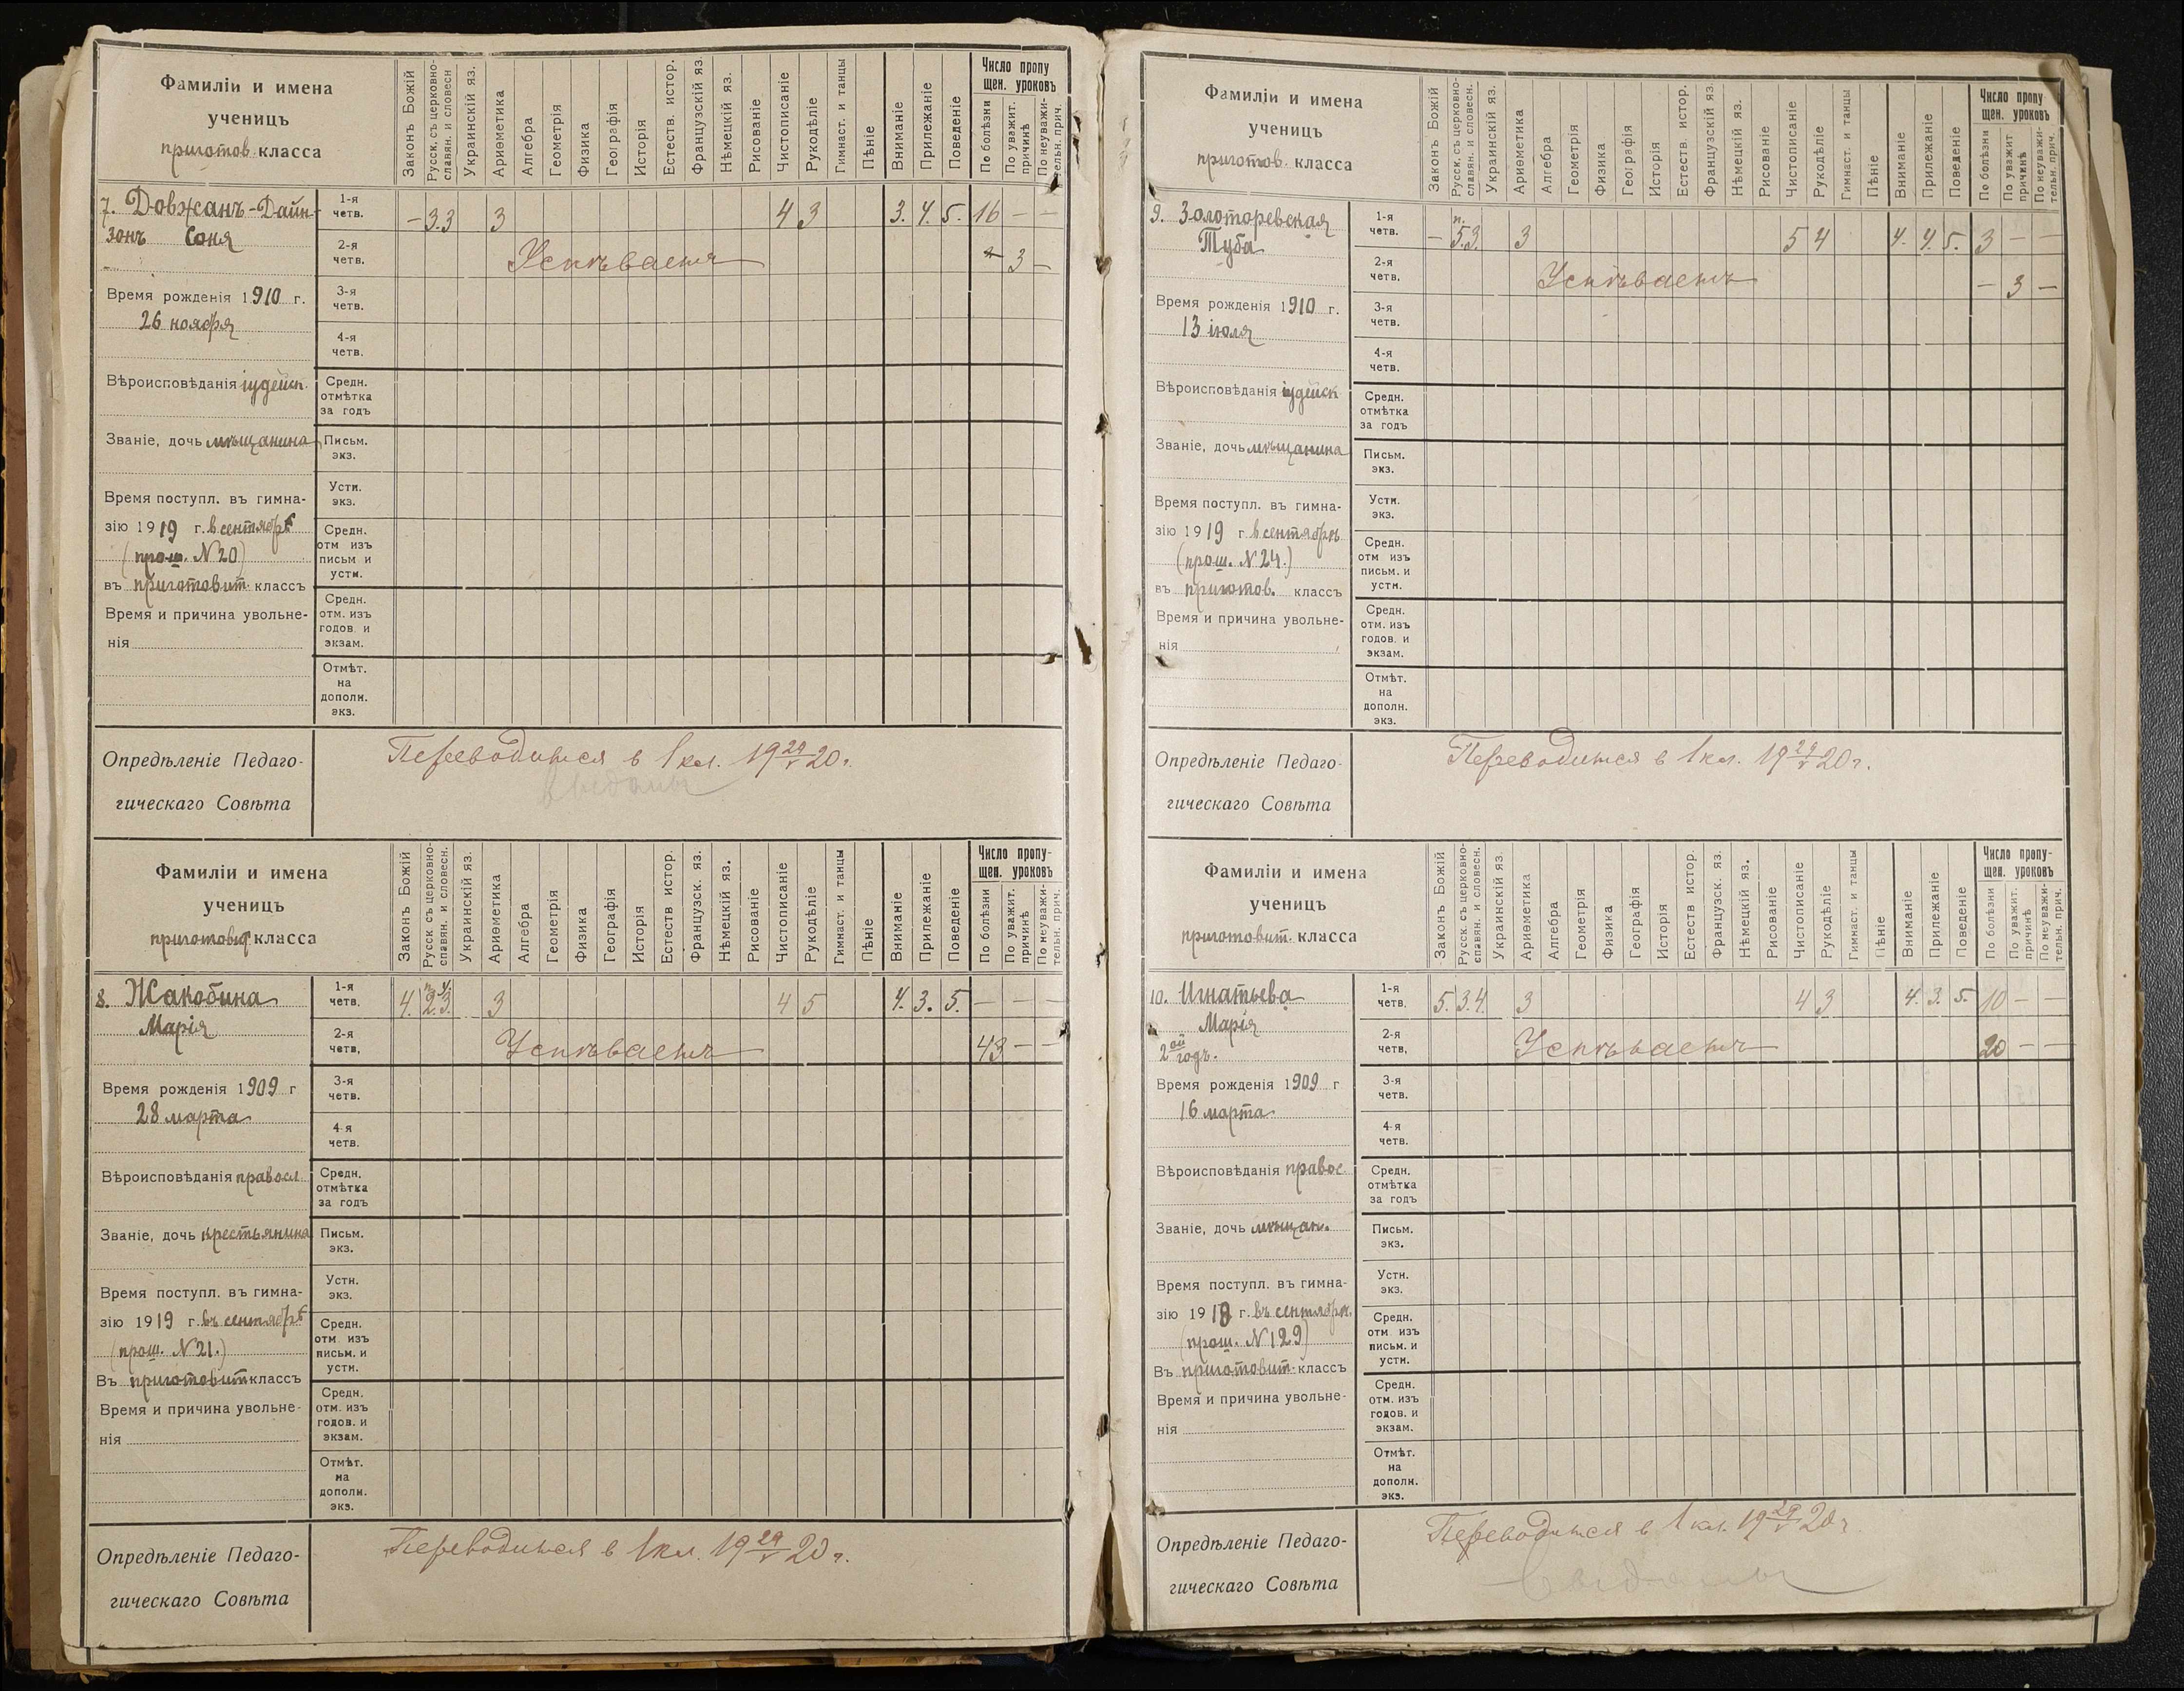 Фамиліи и имена
ученицъ
приготов. класса
Законъ Божій
Русск. съ церковно-
славян. и словесн
Украинскій яз.
Ариѳметика
Алгебра
Геометрія
Физика
Географія
Исторія
Естеств. истор.
Французскій яз.
Нѣмецкій яз.
Рисованіе
Чистописаніе
Рукодѣліе
Гимнаст. и танцы
Пѣніе
Вниманіе
Прилежаніе
Поведеніе
Число пропу
щен. уроковъ
По болѣзни
По уважит.
причинѣ
По неуважи-
тельн. прич.
7. Довжанъ-Дайн-
зонъ Соня
Время рожденія 1910 г.
26 ноября
Вѣроисповѣданія іудейск.
Званіе, дочь мѣщанина
Время поступл. въ гимна-
зію 1919 г. в сентябрѣ
(прош. N 20)
въ приготовит. классъ
Время и причина увольне-
нія
1-я
четв.
– 3.3 3 4 3 3. 4. 5. 16 – –
2-я
четв.
Успѣваетъ
3 –
3-я
четв.
4-я
четв.
Средн.
отмѣтка
за годъ
Письм.
экз.
Устн.
экз.
Средн.
отм изъ
письм и
устн.
Средн.
отм. изъ
годов. и
экзам.
Отмѣт.
на
дополн.
экз.
Опредѣленіе Педаго-
гическаго Совѣта
Переводится в 1 кл. 19 29/V 20 г.
Выданы
Фамиліи и имена
ученицъ
приготовит класса
Законъ Божій
Русск. съ церковно-
славян. и словесн.
Украинскій яз.
Ариѳметика
Алгебра
Геометрія
Физика
Географія
Исторія
Естеств истор.
Французск. яз.
Нѣмецкій яз.
Рисованіе
Чистописаніе
Рукодѣліе
Гимнаст. и танцы
Пѣніе
Вниманіе
Прилежаніе
Поведеніе
Число пропу-
щен. уроковъ
По болѣзни
По уважит.
причинѣ
По неуважи-
тельн. прич.
8. Жакобина
Марія
Время рожденія 1909 г
28 марта
Вѣроисповѣданія правосл.
Званіе, дочь крестьянина
Время поступл. въ гимна-
зію 1919 г. въ сентябрѣ
(прош. N 21.)
Въ приготовит классъ
Время и причина увольне-
нія
1-я
четв.
4. 2.3. 3 4 5 4. 3. 5. – – –
2-я
четв,
Успѣваетъ
43 – –
3-я
четв.
4-я
четв.
Средн.
отмѣтка
за годъ
Письм.
экз.
Устн.
экз.
Средн.
отм. изъ
письм. и
устн.
Средн.
отм. изъ
годов. и
экзам.
Отмѣт.
на
дополн.
экз.
Опредѣленіе Педаго-
гическаго Совѣта
Переводится в 1 кл. 19 29/V 20 г.
Фамиліи и имена
ученицъ
приготов. класса
Законъ Божій
Русск. съ церковно-
славян. и словесн.
Украинскій яз.
Ариѳметика
Алгебра
Геометрія
Физика
Географія
Исторія
Естеств. истор.
Французскій яз.
Нѣмецкій яз.
Рисованіе
Чистописаніе
Рукодѣліе
Гимнаст. и танцы
Пѣніе
Вниманіе
Прилежаніе
Поведеніе
Число пропу
щен. уроковъ
По болѣзни
По уважит
причинѣ
По неуважи-
тельн. прич.
9. Золоторевская
Туба
Время рожденія 1910 г.
13 іюля
Вѣроисповѣданія іудейск
Званіе, дочь мѣщанина
Время поступл. въ гимна-
зію 1919 г в сентябрѣ
(прош. N 24.)
въ приготов. классъ
Время и причина увольне-
нія
1-я
четв.
– 5.3. 3 5 4 4. 4. 5. 3 – –
2-я
четв.
Успѣваетъ
– 3 –
3-я
четв.
4-я
четв.
Средн.
отмѣтка
за годъ
Письм.
экз.
Устн.
экз.
Средн.
отм изъ
письм. и
устн.
Средн.
отм. изъ
годов. и
экзам.
Отмѣт.
на
дополн.
экз.
Опредѣленіе Педаго-
гическаго Совѣта
Переводится в 1 кл. 19 29/V 20 г.
Фамиліи и имена
ученицъ
приготовит. класса
Законъ Божій
Русск. съ церковно-
славян. и словесн.
Украинскій яз.
Ариѳметика
Алгебра
Геометрія
Физика
Географія
Исторія
Естеств истор.
Французск. яз.
Нѣмецкій яз.
Рисованіе
Чистописаніе
Рукодѣліе
Гимнаст. и танцы
Пѣніе
Вниманіе
Прилежаніе
Поведеніе
Число пропу-
щен. уроковъ
По болѣзни
По уважит.
причинѣ
По неуважи-
тельн. прич.
10. Игнатьева
Марія
2ой годъ.
Время рожденія 1909 г
16 марта
Вѣроисповѣданія правос.
Званіе, дочь мѣщан.
Время поступл. въ гимна-
зію 1918 г. въ сентябрѣ.
(прош. N 129)
Въ приготовит. классъ
Время и причина увольне-
нія
1-я
четв,
5. 3.4. 3 4 3 4. 3. 5. 10 – –
2-я
четв,
Успѣваетъ
20 – –
3-я
четв.
4-я
четв.
Средн.
отмѣтка
за годъ
Письм.
экз.
Устн.
экз.
Средн.
отм. изъ
письм. и
устн.
Средн.
отм. изъ
годов. и
экзам.
Отмѣт.
на
дополн.
экз.
Опредѣленіе Педаго-
гическаго Совѣта
Переводится в 1 кл. 19 29/V 20 г.
Выданы